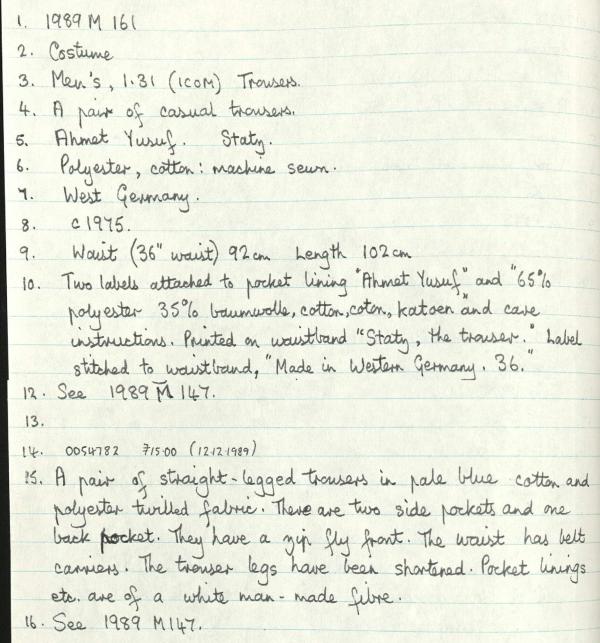 1. 1989 M 161
2. Costume
3. Men's, 1.31 (ICOM) Trousers.
4. A pair of casual trousers.
5. Ahmet Yusuf. Staty.
6. Polyester, cotton: machine sewn.
7. West Germany.
8. c 1975.
9. Waist (36" waist) 92cm Length 102cm
10. Two labels attached to pocket lining "Ahmet Yusuf" and "65%
polyester 35% baumwolle, cotton, coton, katoen" and care
instructions. Printed on waistband "Staty, the trouser." Label
stitched to waistband, "Made in Western Germany. 36."
12. See 1989 M 147.
13.
14. 0054782 715.00 (12.12.1989)
15. A pair of straight-legged trousers in pale blue cotton and
polyester twilled fabric. There are two side pockets and one
back pocket. They have a zip fly front. The waist has belt
carriers. The trouser legs have been shortened. Pocket linings
etc. are of a white man-made fibre.
16. See 1989 M147.